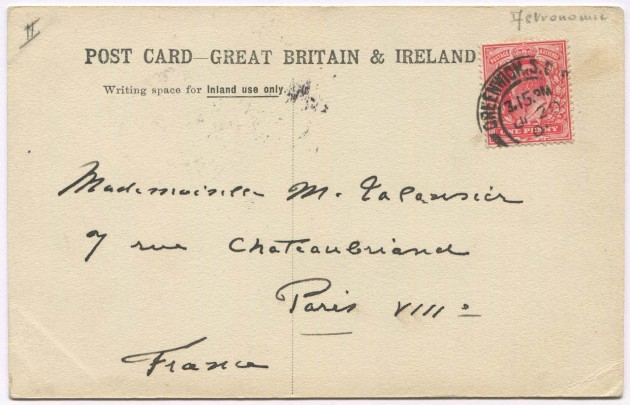 Astronomie
POST CARD—GREAT BRITAIN & IRELAND
Writing space for Inland use only.
GREENWICH. S.
3.15 PM
ONE PENNY
Mademoiselle M.
7 rue Chateaubriand
Paris VIIIe
France